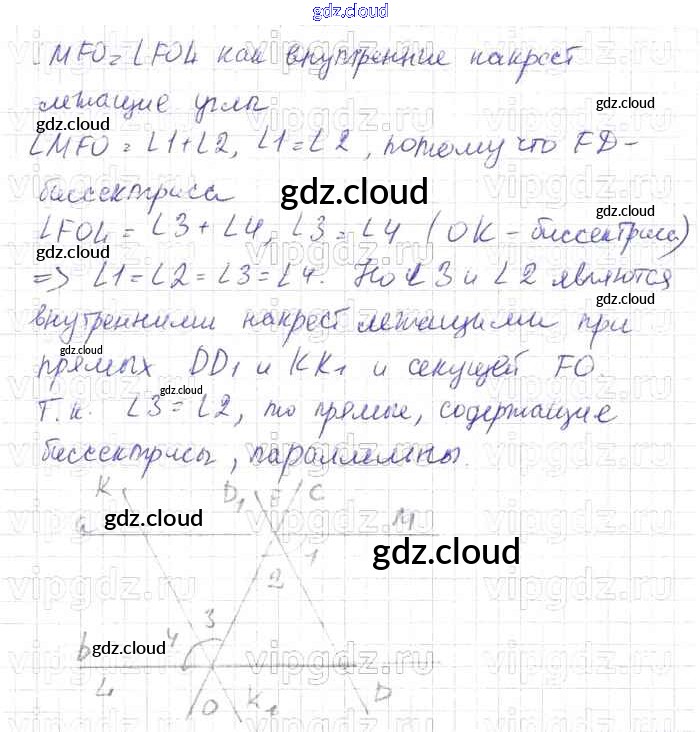 gdz.cloud
∠MFO = ∠FOL как внутренние накрест
лежащие углы
gdz.cloud
gdz.cloud
∠MFO = ∠1+∠2, ∠1=∠2, потому что FD-
биссектриса
gdz.cloud
gdz.cloud
∠FOL = ∠3 + ∠4, ∠3 = ∠4 (OK - биссектриса)
gdz.cloud
=> ∠1=∠2=∠3=∠4. Но ∠3 и ∠2 являются
gdz.cloud
внутренними накрест лежащими при
gdz.cloud
прямых DD₁ и KK₁ и секущей FO.
gdz.cloud
Т.к. ∠3=∠2, то прямые, содержащие
биссектрисы, параллельны.
K D₁ F C
a gdz.cloud M
1
gdz.cloud
2
3
b gdz.cloud 4
L
O K₁ D
vipgdz.ru